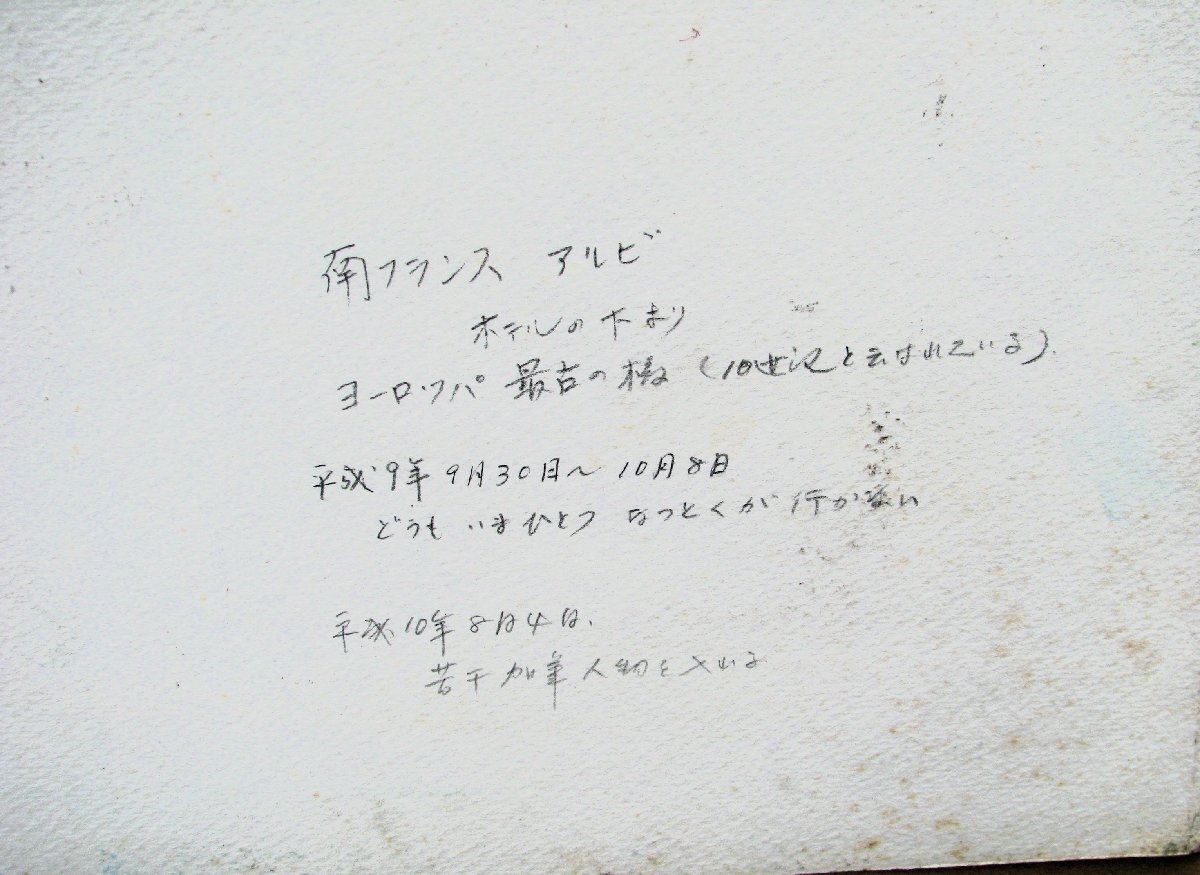 南フランス アルビ
ホテルの下より
ヨーロッパ 最古の橋 (10世紀と云はれている).
平成9年 9月30日～10月8日
どうも いまひとつ なっとくが行かない
平成10年8月4日.
若干加筆 人物を入れる